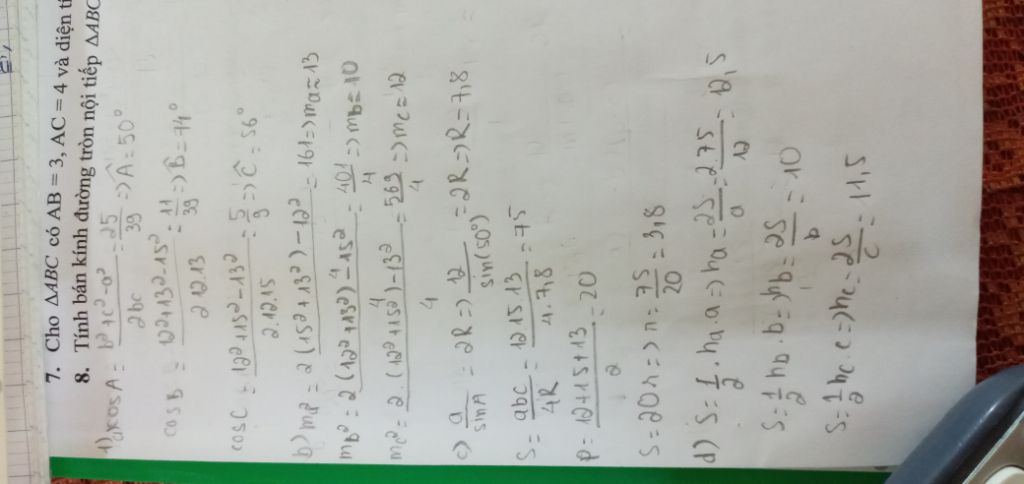 7. Cho ΔABC có AB = 3, AC = 4 và diện t
8. Tính bán kính đường tròn nội tiếp ΔABC
1) a) cosA = b²+c²-a² / 2bc = 25/39 => Â = 50°
cosB = 12²+13²-15² / 2.12.13 = 11/39 => B̂ = 74°
cosC = 12²+15²-13² / 2.12.15 = 5/9 => Ĉ = 56°
b) ma² = 2(15²+13²)-12² / 4 = 161 => ma = 13
mb² = 2(12²+13²)-15² / 4 = 401/4 => mb = 10
mc² = 2.(12²+15²)-13² / 4 = 569/4 => mc = 12
c) a/sinA = 2R => 12/sin(50°) = 2R => R = 7,8
S = abc/4R = 12 15 13 / 4.7,8 = 75
p = 12+15+13 / 2 = 20
S = 20r => r = 75/20 = 3,8
d) S = 1/2 . ha a => ha = 2S/a = 2.75/12 = 12,5
S = 1/2 hb . b => hb = 2S/b = 10
S = 1/2 hc . c => hc = 2S/c = 11,5